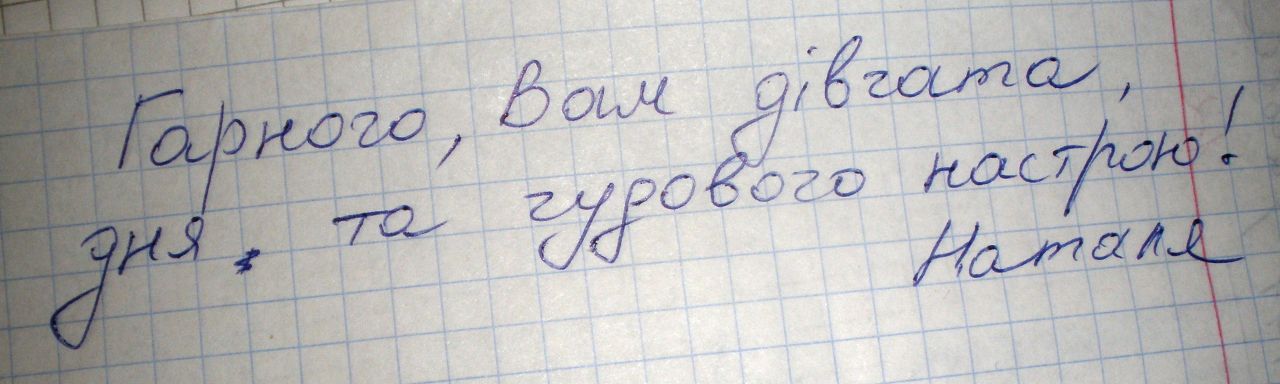 Гарного, Вам дівчата,
дня. та чудового настрою!
Наталя